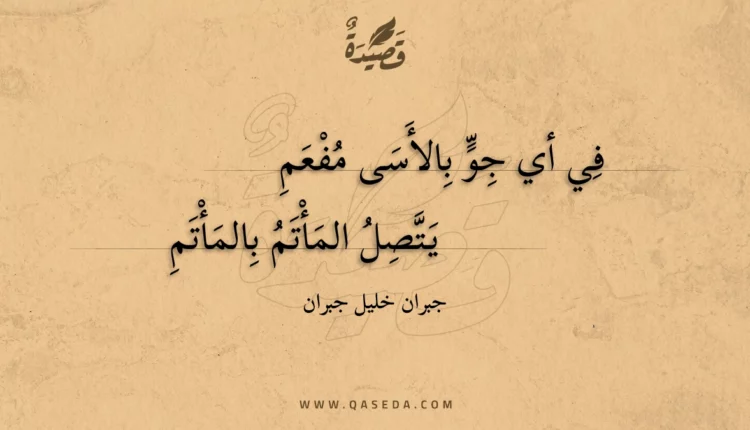 قَصِيدَةٌ
فِي أي جِوٍّ بِالأَسَى مُفْعَمِ
يَتَّصِلُ المَأْتَمُ بِالمَأْتَمِ
جبران خليل جبران
WWW.QASEDA.COM